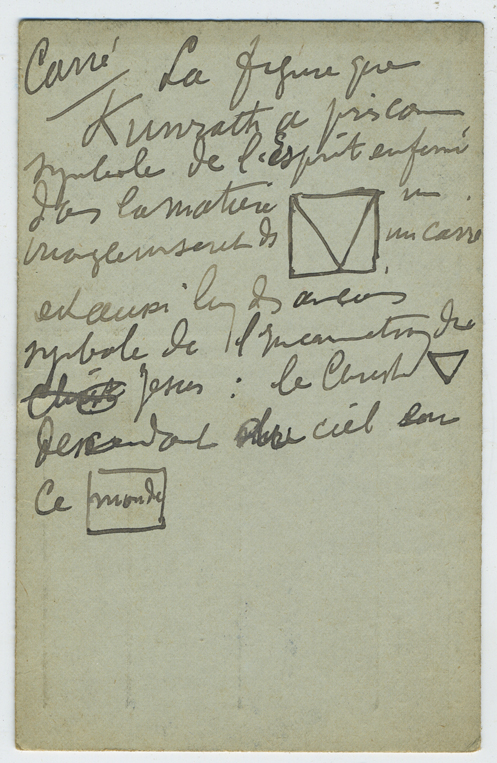 Carré La figure que
Kunrath a pris com
symbole de l'Esprit enfermé
dans la matière un
triangle inséré ds un carré
est aussi l'un des anciens
symbole de l'Incarnation de
Jesus : le Christ
descendant du ciel sur
ce monde